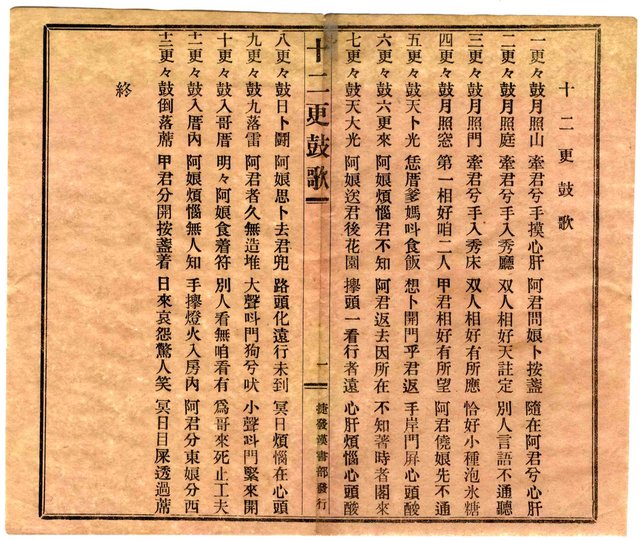 十二更鼓歌
一更々鼓月照山　牽君兮手摸心肝　阿君問娘卜按盞　隨在阿君兮心肝
二更々鼓月照庭　牽君兮手入秀廳　双人相好天註定　別人言語不通聽
三更々鼓月照門　牽君兮手入秀床　双人相好有所應　恰好小種泡氷糖
四更々鼓月照窓　第一相好咱二人　甲君相好有所望　阿君僥娘先不通
五更々鼓天卜光　恁厝爹媽叫食飯　想卜開門乎君返　手岸門屏心頭酸
六更々鼓六更來　阿娘煩惱君不知　阿君返去因所在　不知著時者閣來
七更々鼓天大光　阿娘送君後花園　攑頭一看行者遠　心肝煩惱心頭酸
十二更鼓歌
一
捷發漢書部發行
八更々鼓日卜鬪　阿娘思卜去君兜　路頭化遠行未到　冥日煩惱在心頭
九更々鼓九落雷　阿君者久無造堆　大聲叫門狗兮吠　小聲叫門緊來開
十更々鼓入哥厝　明々阿娘食着符　別人看無咱看有　爲哥來死止工夫
十一更々鼓入厝內　阿娘煩惱無人知　手攑燈火入房內　阿君分東娘分西
十二更々鼓倒落蓆　甲君分開按盞着　日來哀怨驚人笑　冥日目屎透過蓆
終